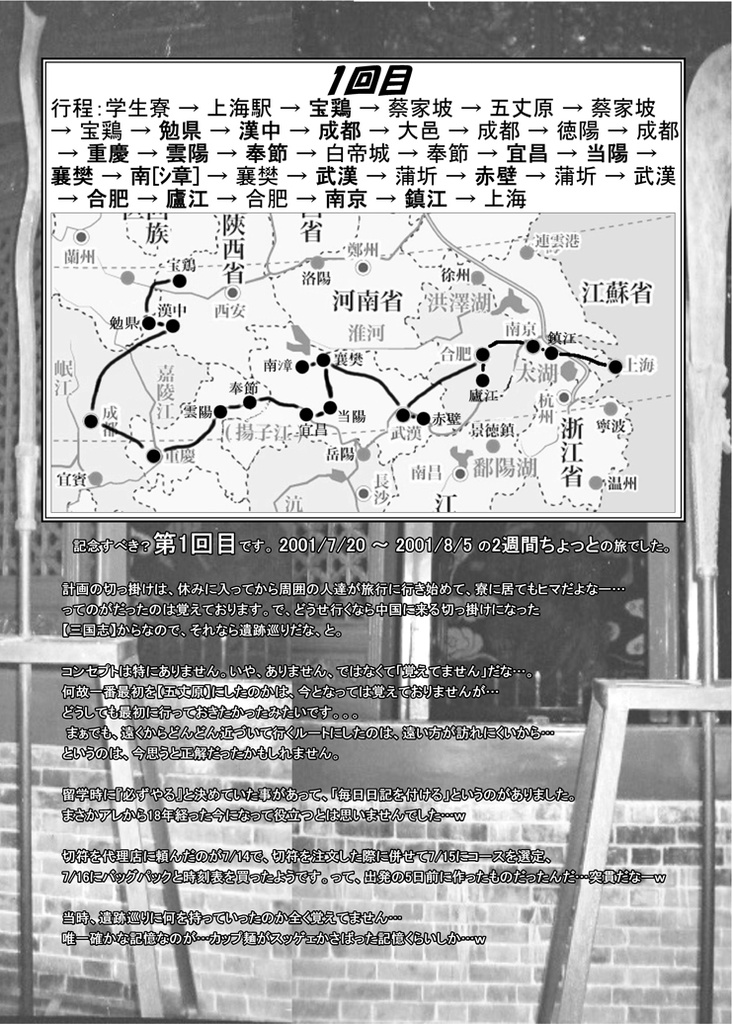 1回目
行程：学生寮 → 上海駅 → 宝鶏 → 蔡家坡 → 五丈原 → 蔡家坡
→ 宝鶏 → 勉県 → 漢中 → 成都 → 大邑 → 成都 → 徳陽 → 成都
→ 重慶 → 雲陽 → 奉節 → 白帝城 → 奉節 → 宜昌 → 当陽 →
襄樊 → 南[シ章] → 襄樊 → 武漢 → 蒲圻 → 赤壁 → 蒲圻 → 武漢
→ 合肥 → 廬江 → 合肥 → 南京 → 鎮江 → 上海
族
陝西省
省
蘭州
宝鶏
洛陽
鄭州
徐州
連雲港
西安
河南省
洪澤湖
江蘇省
勉県
漢中
淮河
南京
鎮江
岷江
嘉陵江
南漳
襄樊
合肥
上海
太湖
成都
奉節
雲陽
宜昌
当陽
廬江
武漢
赤壁
杭州
浙江省
寧波
重慶
揚子江
岳陽
景徳鎮
宜賓
長沙
南昌
鄱陽湖
温州
江
記念すべき？第1回目です。2001/7/20 ～ 2001/8/5 の2週間ちょっとの旅でした。
計画の切っ掛けは、休みに入ってから周囲の人達が旅行に行き始めて、寮に居てもヒマだよなー…
ってのがだったのは覚えております。で、どうせ行くなら中国に来る切っ掛けになった
【三国志】からなので、それなら遺跡巡りだな、と。
コンセプトは特にありません。いや、ありません、ではなくて「覚えてません」だな…。
何故一番最初を【五丈原】にしたのかは、今となっては覚えておりませんが…
どうしても最初に行っておきたかったみたいです。。。
まぁでも、遠くからどんどん近づいて行くルートにしたのは、遠い方が訪れにくいから…
というのは、今思うと正解だったかもしれません。
留学時に『必ずやる』と決めていた事があって、「毎日日記を付ける」というのがありました。
まさかアレから18年経った今になって役立つとは思いませんでした…w
切符を代理店に頼んだのが7/14で、切符を注文した際に併せて7/15にコースを選定、
7/16にバッグパックと時刻表を買ったようです。って、出発の5日前に作ったものだったんだ…突貫だなーw
当時、遺跡巡りに何を持っていったのか全く覚えてません…
唯一確かな記憶なのが…カップ麺がスッゲェかさばった記憶くらいしか…w